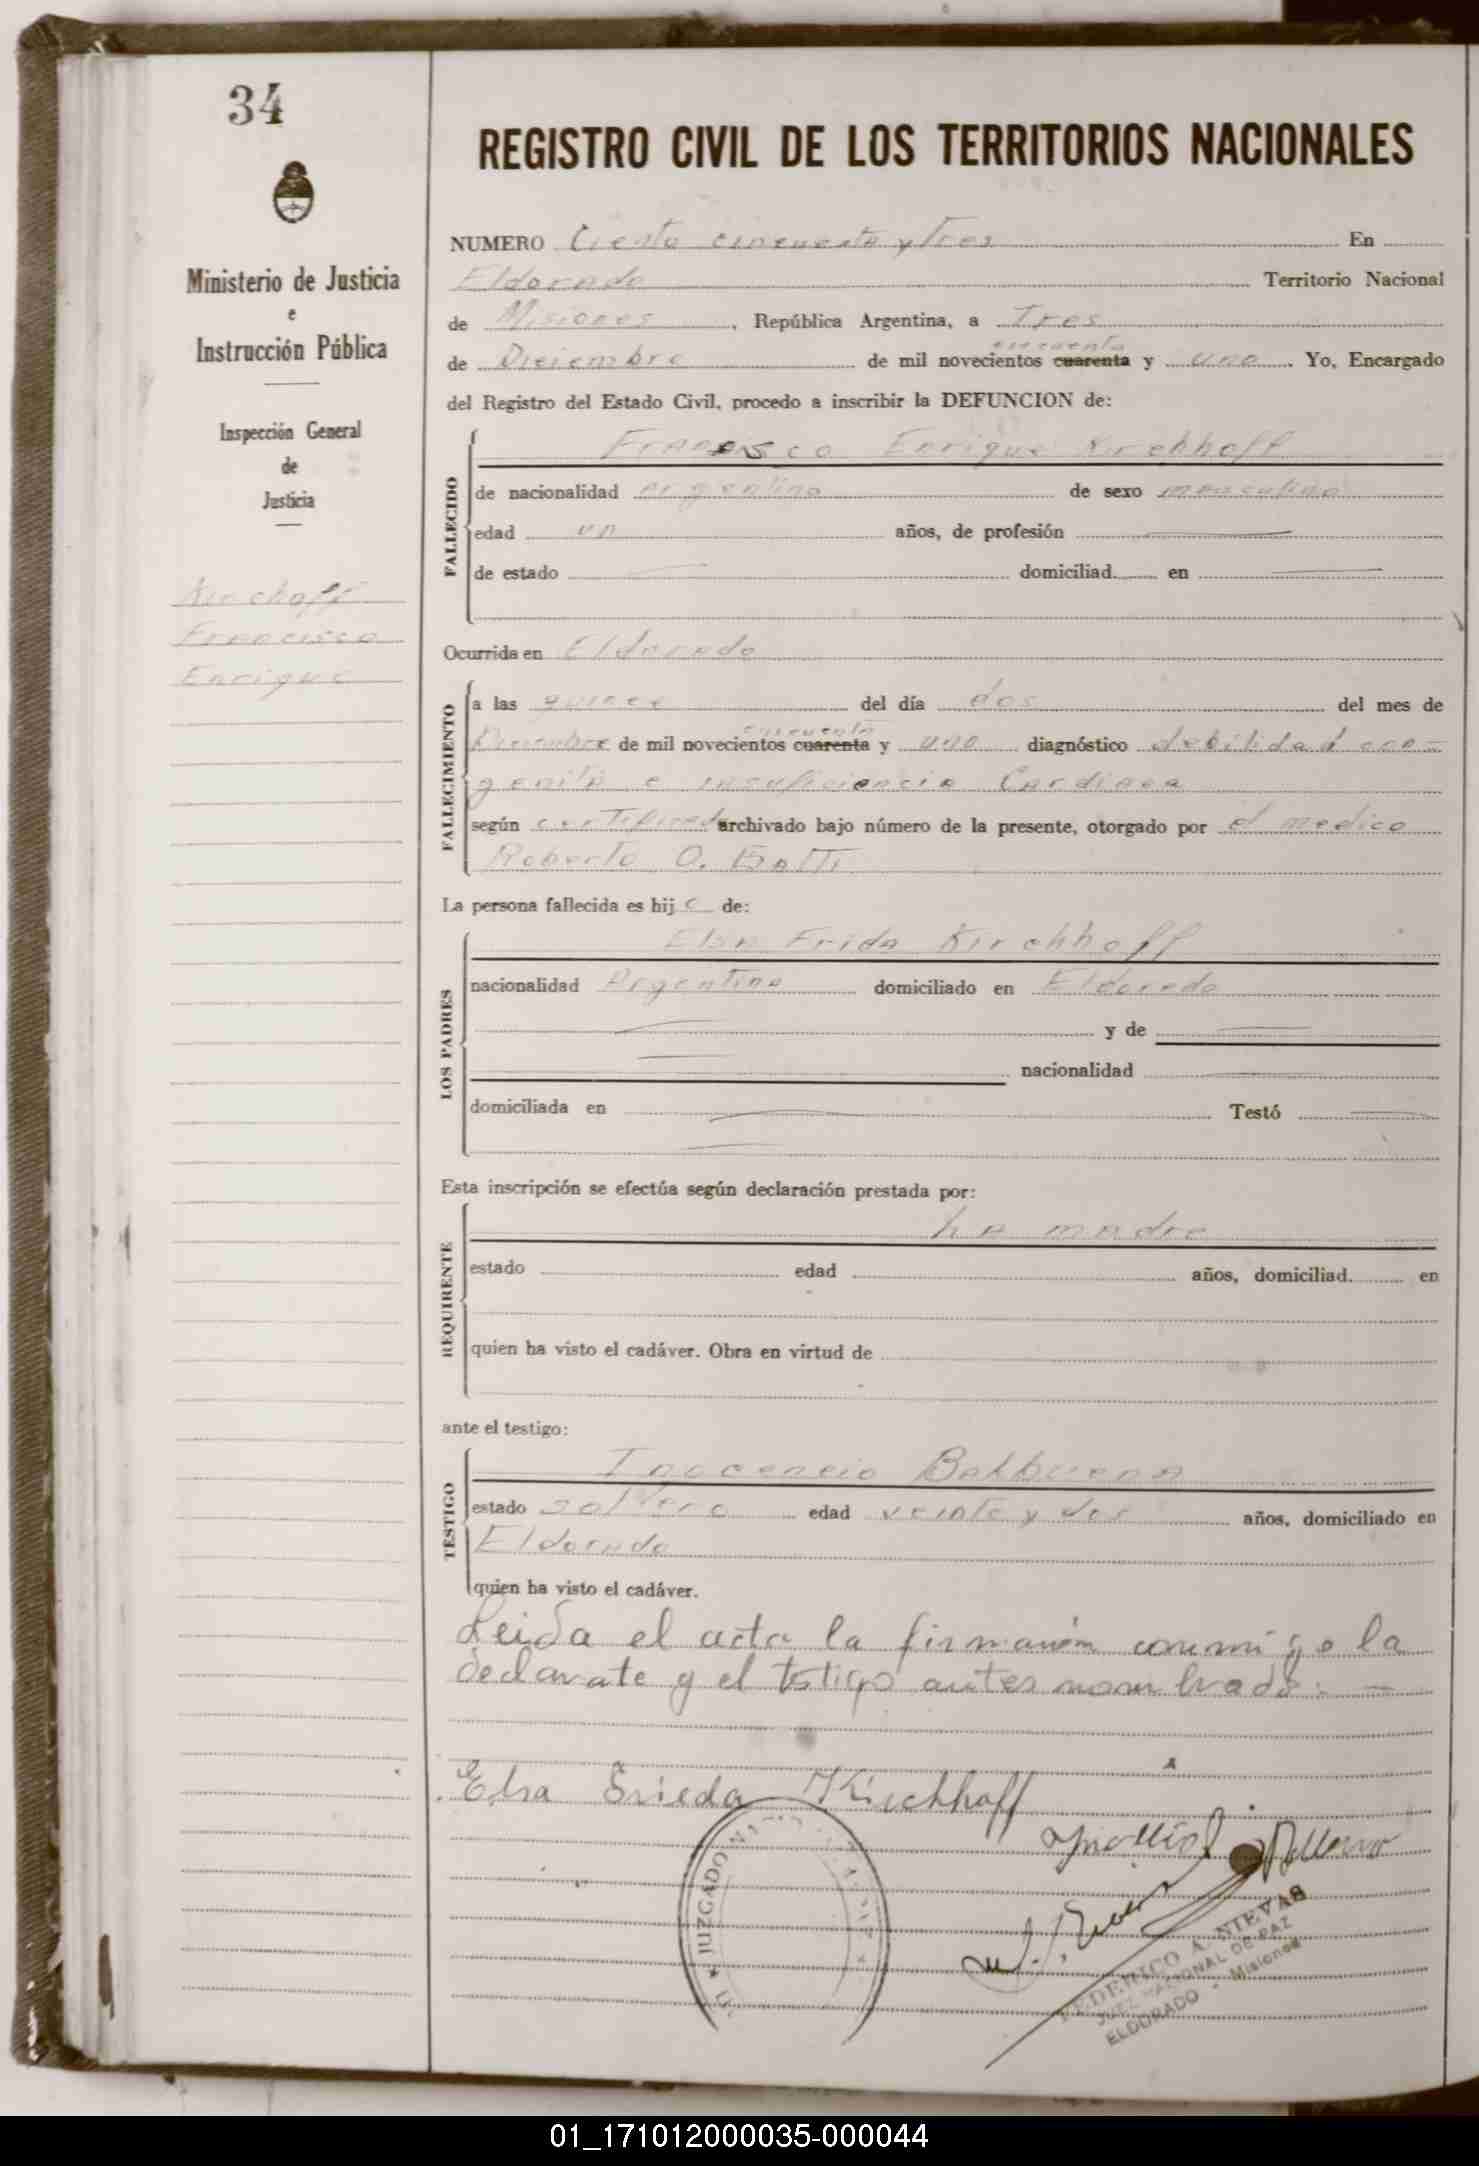 34
Ministerio de Justicia
e
Instrucción Pública
Inspección General
de
Justicia
Kirchoff
Francisco
Enrique
REGISTRO CIVIL DE LOS TERRITORIOS NACIONALES
NUMERO Ciento cincuenta y Tres En
Eldorado Territorio Nacional
de Misiones, República Argentina, a Tres
cincuenta
de Diciembre de mil novecientos cuarenta y uno. Yo, Encargado
del Registro del Estado Civil, procedo a inscribir la DEFUNCION de:
Francisco Enrique Kirchhoff
FALLECIDO
de nacionalidad argentina de sexo masculino
edad un años, de profesión
de estado domiciliad. en
Ocurrida en Eldorado
FALLECIMIENTO
a las quince del día dos del mes de
cincuenta
Diciembre de mil novecientos cuarenta y uno diagnóstico debilidad con-
genita e insuficiencia Cardiaca
según certificado archivado bajo número de la presente, otorgado por el medico
Roberto O.
La persona fallecida es hijo de:
LOS PADRES
Elsa Frida Kirchhoff
nacionalidad Argentina domiciliado en Eldorado
y de
nacionalidad
domiciliada en Testó
Esta inscripción se efectúa según declaración prestada por:
REQUIRENTE
La madre
estado edad años, domiciliad. en
quien ha visto el cadáver. Obra en virtud de
ante el testigo:
TESTIGO
Inocencio Balbuena
estado soltero edad veinte y dos años, domiciliado en
Eldorado
quien ha visto el cadáver.
Leida el acta la firmarón conmigo la
declarate y el testigo antes nombrado. -
Elsa Frieda Kirchhoff
★ JUZGADO
FEDERICO A. NIEVAS
JUEZ NACIONAL DE PAZ
ELDORADO - Misiones
01_171012000035-000044